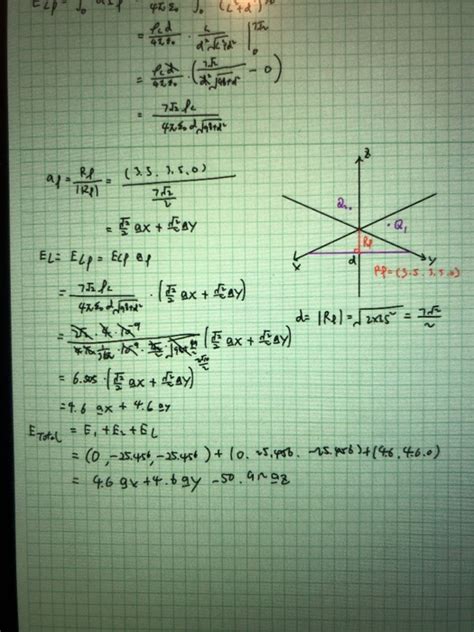 = ρL d / 4πε0 · L / d²√(L²+d²) |₀^7√2
= ρL d / 4πε0 · (7√2 / d²√(98+d²) - 0)
= 7√2 ρL / 4πε0 d√(98+d²)
aρ = Rρ / |Rρ| = (3.5, 3.5, 0) / (7√2 / 2)
= √2/2 ax + √2/2 ay
EL = ELρ = ELρ aρ
= 7√2 ρL / 4πε0 d√(98+d²) · (√2/2 ax + √2/2 ay)
(√2/2 ax + √2/2 ay)
= 6.505 (√2/2 ax + √2/2 ay)
= 4.6 ax + 4.6 ay
ETotal = E1 + E2 + EL
= (0, -25.456, -25.456) + (0, 25.456, -25.456) + (4.6, 4.6, 0)
= 4.6 ax + 4.6 ay - 50.92 az
z
Q2
Q1
Rρ
x
d
y
Rρ = (3.5, 3.5, 0)
d = |Rρ| = √(2×3.5²) = 7√2 / 2